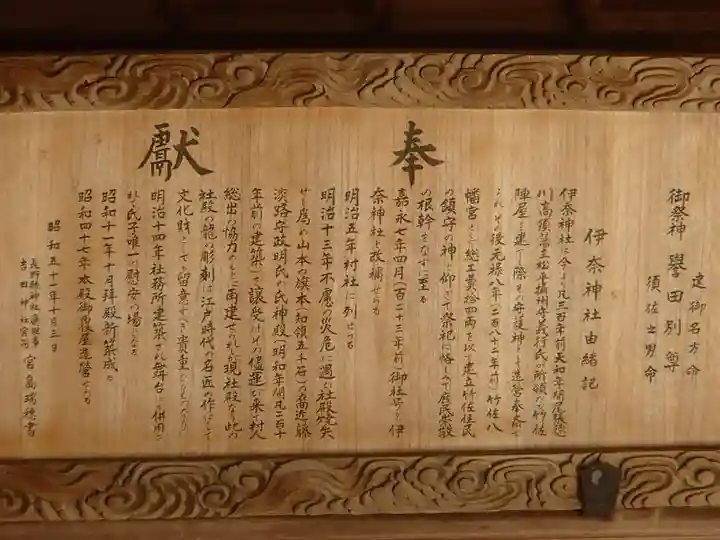 建御名方命
御祭神 誉田別尊
須佐之男命
伊奈神社由緒記
伊奈神社は今より凡三百年前天和年間尾張徳
川高須藩主松平摂州守義行氏が所領の竹佐
陣屋を建し際その守護神として造営奉斎せ
られしその後元禄八年(二百八十二年前)竹佐八
幡宮として総工費拾四両を以て建立竹佐住民
の鎮守の神と仰ぎて祭祀に恪しみて庶民崇敬
の根幹をなすに至る
嘉永七年四月(百二十三年前)御社号を伊
奈神社と改称せらる
明治五年村社に列せらる
明治十三年不慮の火危に遇ひ社殿焼失
せし為め山本の旗本(知領五千石)の裔近藤
淡路守政明氏の氏神殿(明和年間凡二百十
年前の建築)を譲受けその儘運び来て村人
総出の協力のもとに再建せられしが現社殿なり此の
社殿の龍の彫刻は江戸時代の名匠の作にして
文化財としても留意すべき貴重なものなり
明治十四年社務所建築され舞台にも併用
し氏子唯一の慰安の場となる
昭和十一年十月拝殿新築成る
昭和四十七年本殿御覆屋造営せらる
昭和五十一年十月三日
長野県神社庁理事
吉田神社宮司 宮島瑞穂書
奉
献